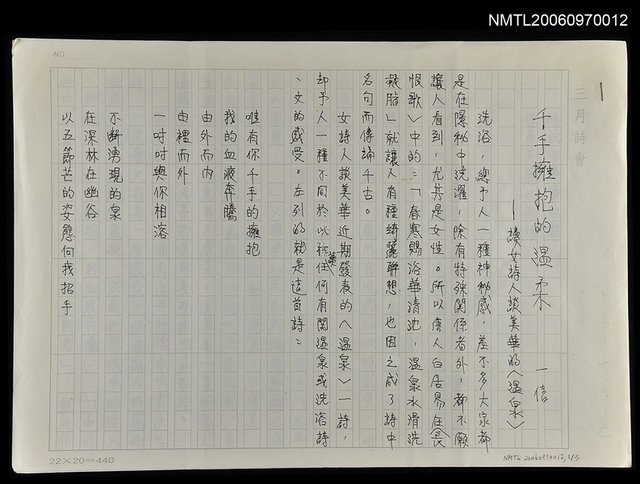 NMTL20060970012
NO
三月詩會
千手擁抱的溫柔　一信
——讀女詩人談美華的〈溫泉〉
洗浴，總予人一種神秘感，差不多大家都
是在隱秘中洗濯，除有特殊關係者外，都不願
讓人看到，尤其是女性。所以唐人白居易在〈長
恨歌〉中的：「春寒賜浴華清池，溫泉水滑洗
凝脂」就讓人有種綺麗聯想，也因之成了詩中
名句而傳誦千古。
女詩人談美華近期發表的〈溫泉〉一詩，
却予人一種不同於以往任何有關溫泉或洗浴詩
、文的感受。左列的就是這首詩：
唯有你千手的擁抱
我的血液奔騰
由外而內
由裡而外
一吋吋與你相溶
不斷湧現的泉
在深林在幽谷
以五節芒的姿態向我招手
22×20=440
NMTL20060970012, 1/3